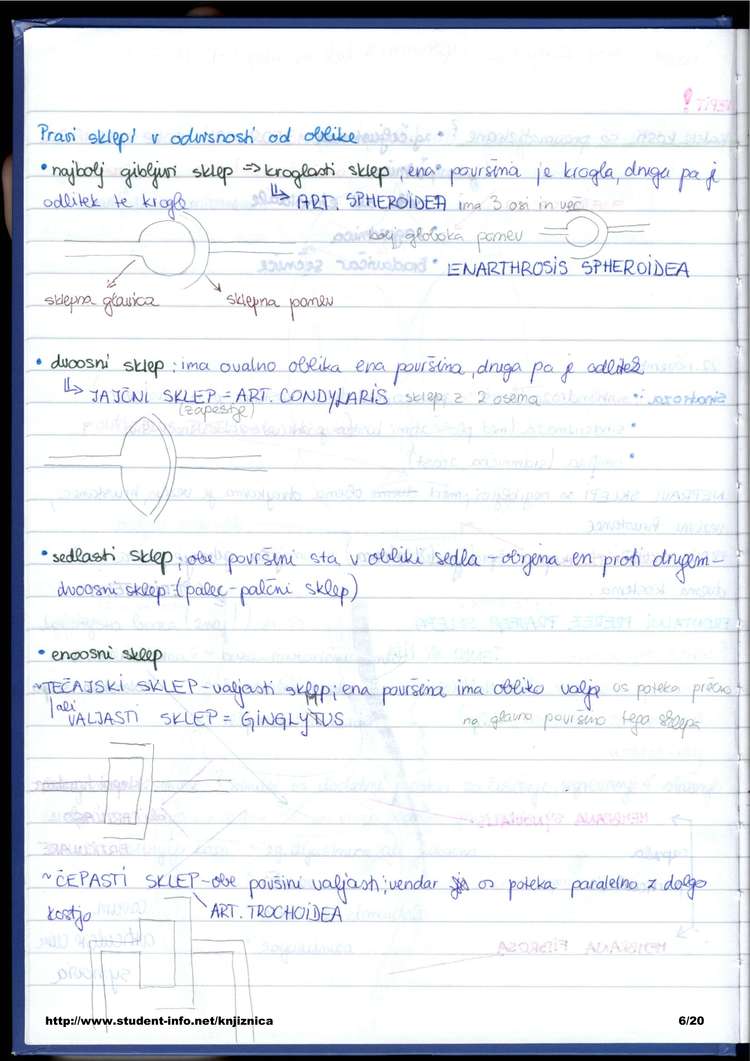 Pravi sklepi v odvisnosti od oblike
• najbolj gibljivi sklep => kroglasti sklep; ena površina je krogla, druga pa je
odlitek te krogle ↳ ART. SPHEROIDEA ima 3 osi in več
bolj globoka ponev
• ENARTHROSIS SPHEROIDEA
sklepna glavica sklepna ponev
• dvoosni sklep: ima ovalno oblika ena površina, druga pa je odlitek
↳ JAJČNI SKLEP = ART. CONDYLARIS sklep z 2 osema
(zapestje)
• sedlasti sklep; obe površini sta v obliki sedla - obrjena en proti drugem-
dvoosni sklep (palec-palčni sklep)
• enoosni sklep
~TEČAJSKI SKLEP-valjasti sklep; ena površina ima obliko valja os poteka prečno
ali VALJASTI SKLEP = GINGLYMUS na glavno površino tega sklepa
~ČEPASTI SKLEP-obe povšini valjasti; vendar os poteka paralelno z dolgo
kostjo ART. TROCHOIDEA
http://www.student-info.net/knjiznica 6/20